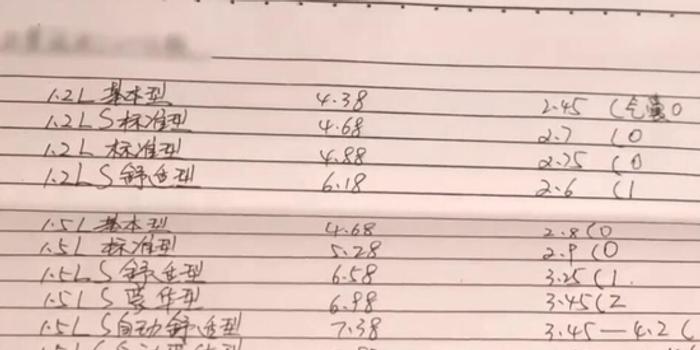 1.2L 基本型 4.38 2.45 (气囊0
1.2L S标准型 4.68 2.7 (0
1.2L 标准型 4.88 2.75 (0
1.2L S舒适型 6.18 2.6 (1
1.5L 基本型 4.68 2.8 (0
1.5L 标准型 5.28 2.9 (0
1.5L S舒适型 6.58 3.25 (1
1.5L S豪华型 6.98 3.45 (2
1.5L S自动舒适型 7.38 3.45—4.2 (